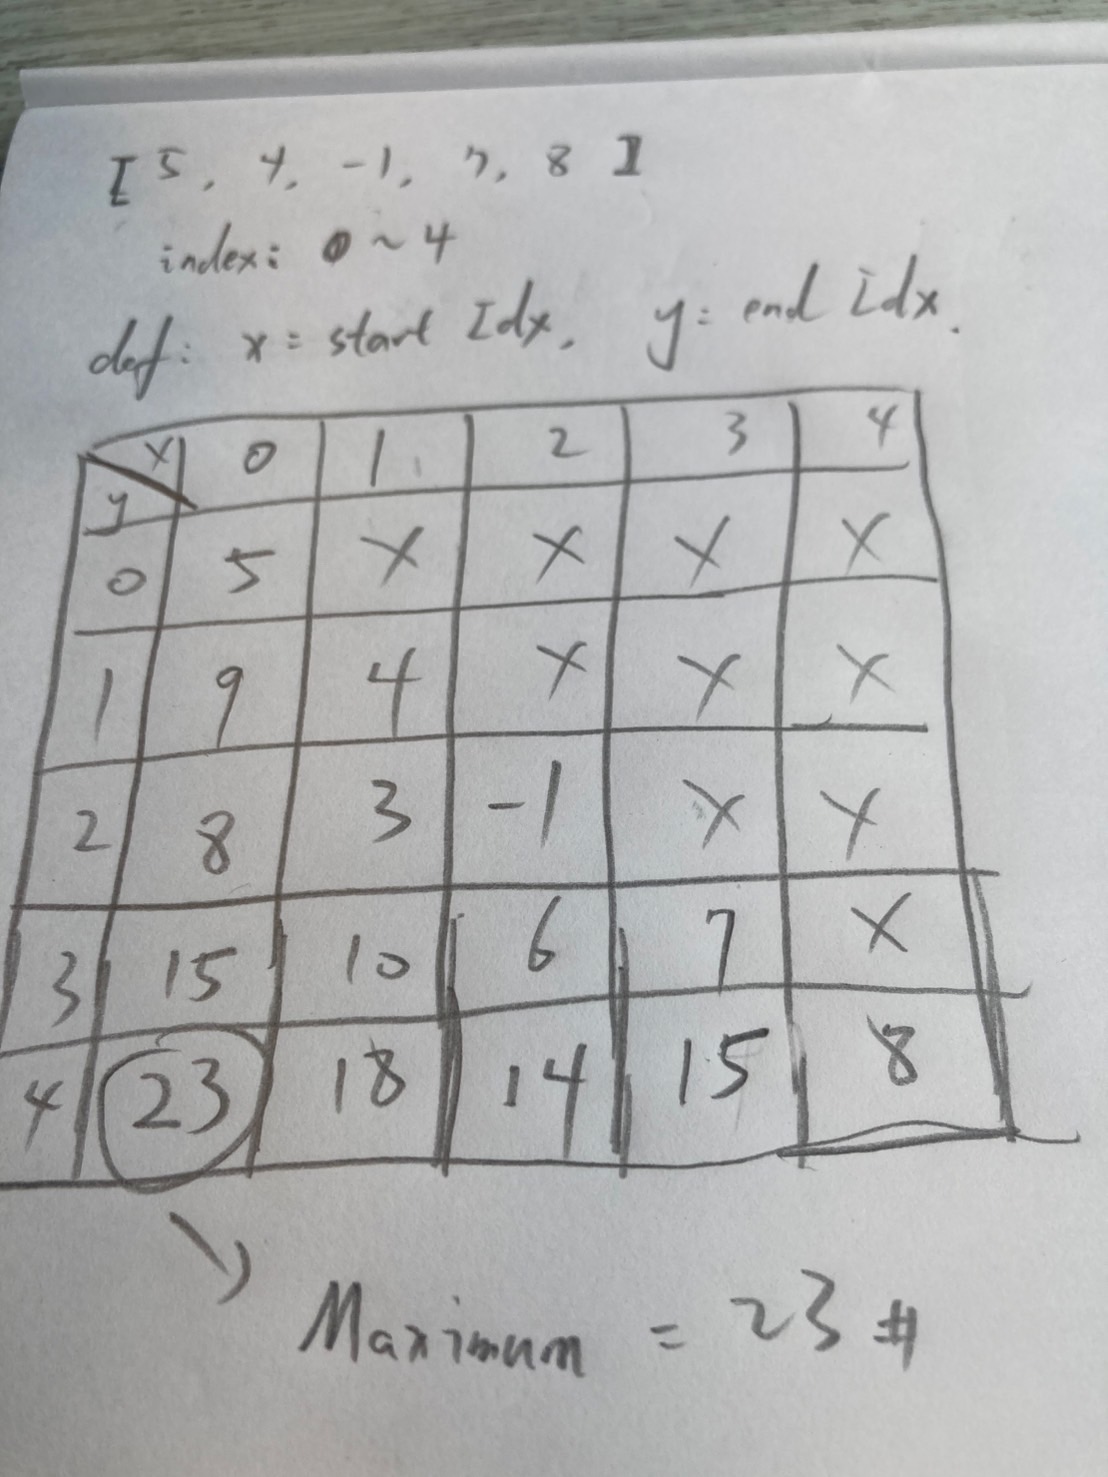 [ 5, 4, -1, 7, 8 ]
index: 0 ~ 4
def: x = start Idx, y = end Idx.
x 0 1 2 3 4
y
0 5 X X X X
1 9 4 X X X
2 8 3 -1 X X
3 15 10 6 7 X
4 23 18 14 15 8
Maximum = 23 #